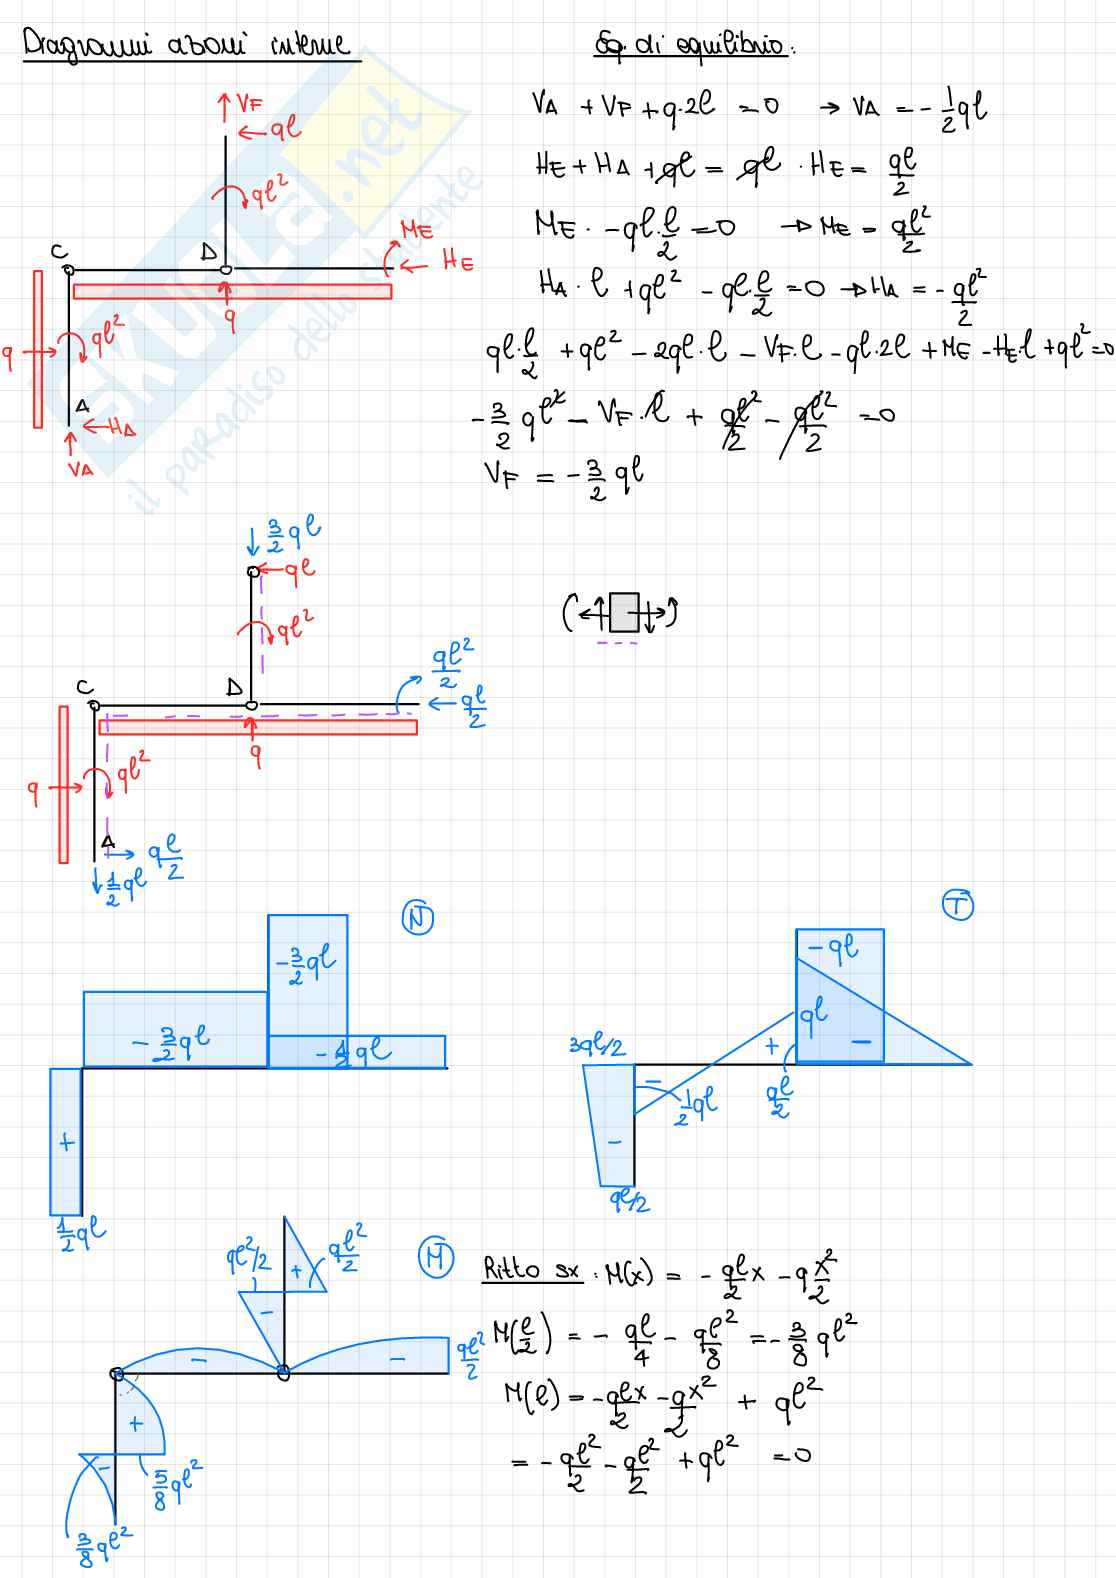 Diagrammi azioni interne
Eq. di equilibrio:
VA + VF + q·2l = 0 → VA = -1/2 ql
HE + HA + ql = ql · HE = ql/2
ME · -ql·l/2 = 0 → ME = ql²/2
HA · l + ql² - ql·l/2 = 0 → HA = -ql²/2
ql·l/2 + ql² - 2ql·l - VF·l - ql·2l + ME - HE·l + ql² = 0
-3/2 ql² - VF·l + ql²/2 - ql²/2 = 0
VF = -3/2 ql
VF
ql
ql²
ME
HE
C
D
q
ql²
q
A
HA
VA
SKUOLA.net
il paradiso dello studente
3/2 ql
ql
ql²
ql²/2
ql/2
C
D
q
ql²
q
A
ql/2
1/2 ql
N
-3/2 ql
-3/2 ql
-1/2 ql
+
1/2 ql
T
-ql
ql
3ql/2
+
-
-
1/2 ql
ql/2
-
ql/2
M
ql²/2
ql²/2
+
-
-
-
ql²/2
+
-
5/8 ql²
3/8 ql²
Ritto sx : M(x) = -ql/2 x - q x²/2
M(l/2) = - ql/4 - ql²/8 = -3/8 ql²
M(l) = -qlx/2 - qx²/2 + ql²
= -ql²/2 - ql²/2 + ql² = 0